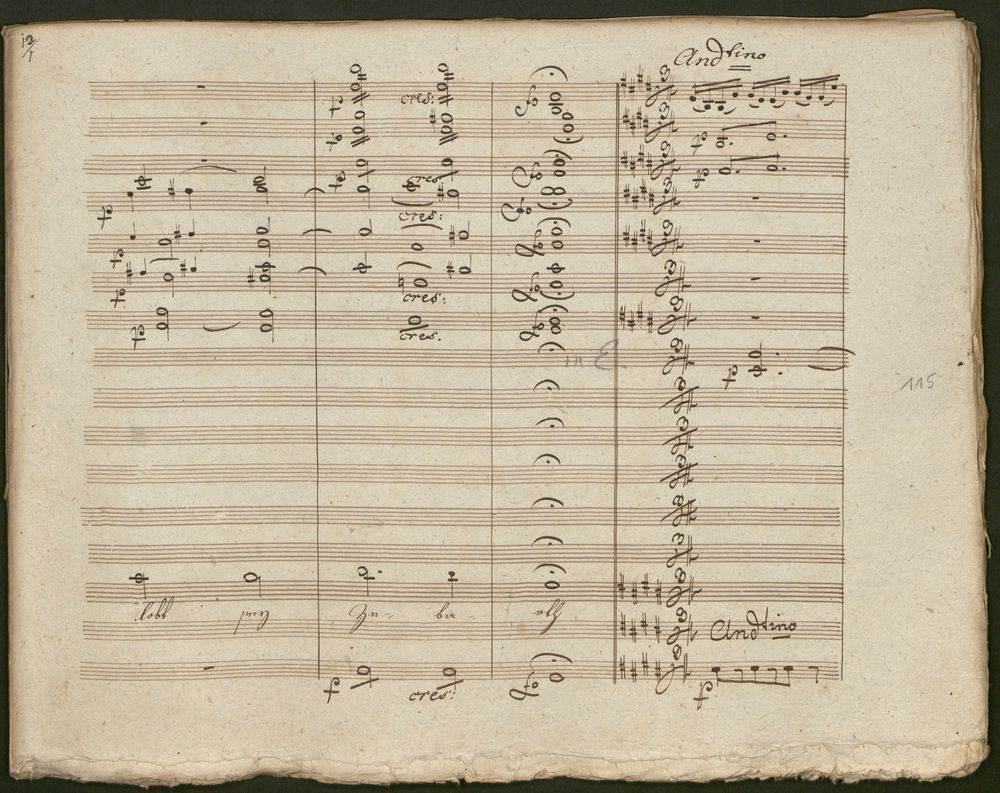 12/1
Andtino
cres:
cres
cres:
cres:
cres.
in E
115
lobt
Ze- ba- oth
Andtino
cres: